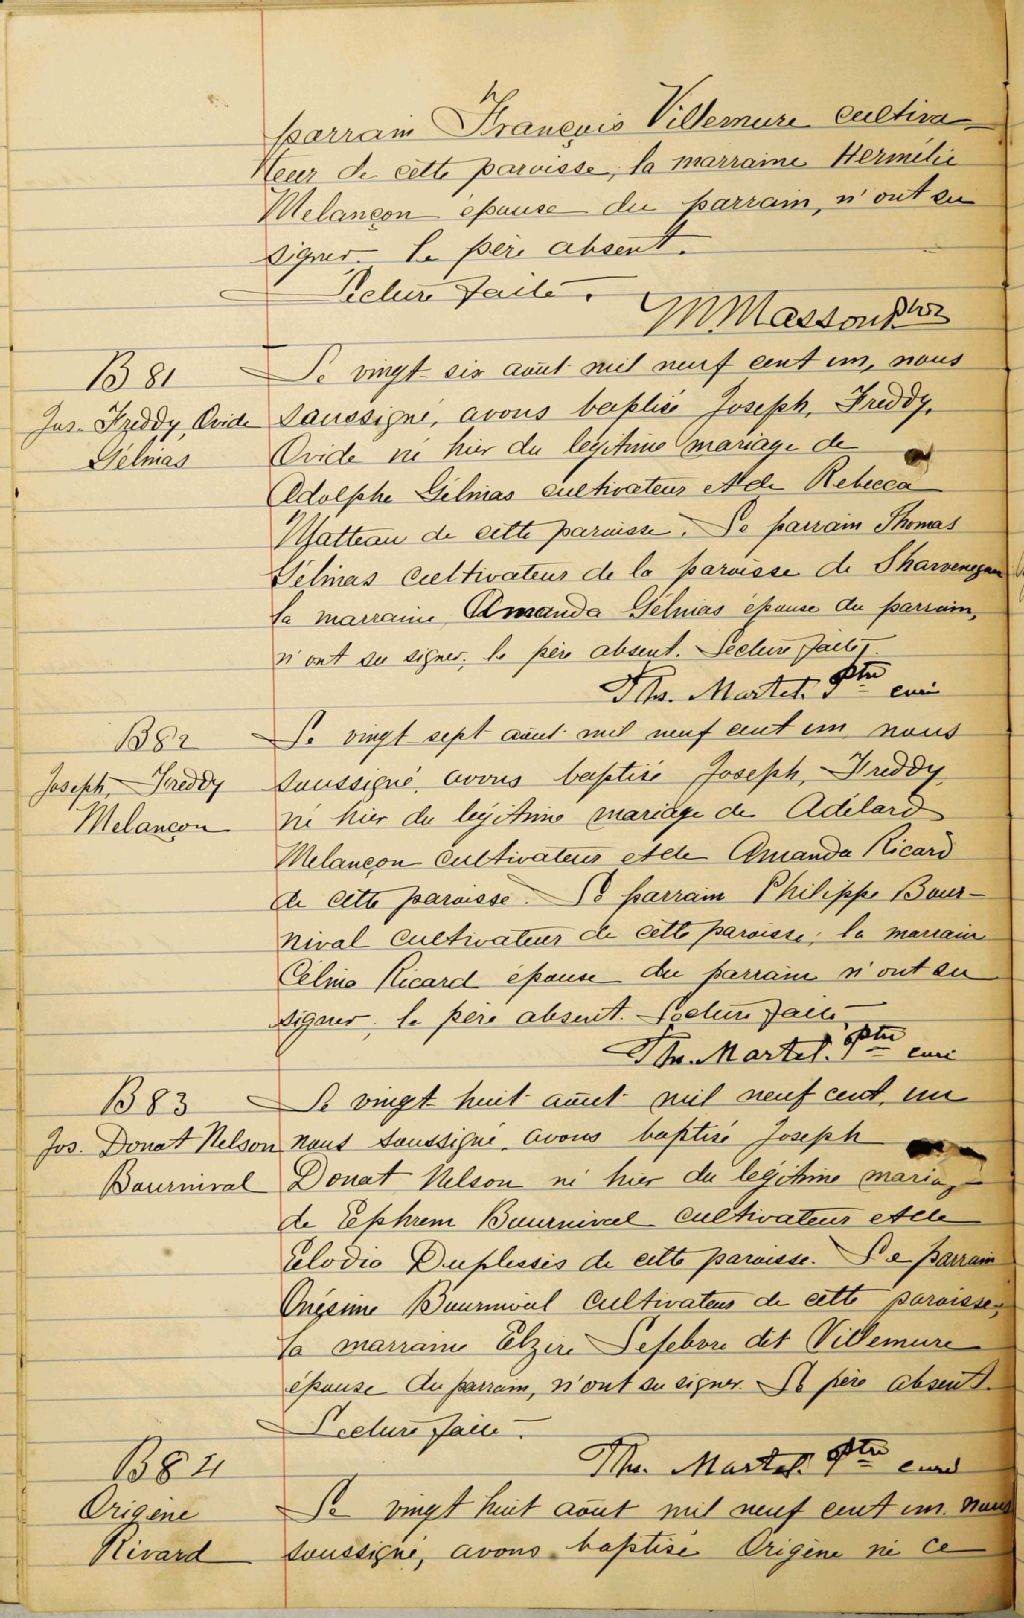 parrain François Villemure cultiva-
teur de cette paroisse, la marraine Hermélie
Melançon épouse du parrain, n'ont su
signer. le père absent.
Lecture faite.
M Masson Ptre
B 81
Le vingt-six août mil neuf cent un, nous
Jos. Freddy, Ovide
soussigné, avons baptisé Joseph, Freddy,
Gélinas
Ovide né hier du légitime mariage de
Adolphe Gélinas cultivateur et de Rebecca
Matteau de cette paroisse. Le parrain Thomas
Gélinas cultivateur de la paroisse de Shawenegan
la marraine Amanda Gélinas épouse du parrain,
n'ont su signer, le père absent. Lecture faite.
Ths. Martel. Ptre curé
B 82
Le vingt sept août mil neuf cent un nous
Joseph, Freddy
soussigné, avons baptisé Joseph, Freddy
Melançon
né hier du légitime mariage de Adélard
Melançon cultivateur et de Amanda Ricard
de cette paroisse. Le parrain Philippe Bour-
nival cultivateur de cette paroisse; la marraine
Célina Ricard épouse du parrain n'ont su
signer, le père absent. Lecture faite
Ths. Martel. Ptre curé
B 83
Le vingt huit août mil neuf cent, un
Jos. Donat Nelson
nous soussigné, avons baptisé Joseph
Bournival
Donat Nelson né hier du légitime mariage
de Ephrem Bournival cultivateur et de
Elodia Duplessis de cette paroisse. Le parrain
Onésime Bournival cultivateur de cette paroisse,
la marraine Elzire Lefebvre dit Villemure
épouse du parrain, n'ont su signer. Le père absent.
Lecture faite.
Ths. Martel. Ptre curé
B 84
Origène
Le vingt huit août mil neuf cent un. nous
Rivard
soussigné, avons baptisé Origène né ce